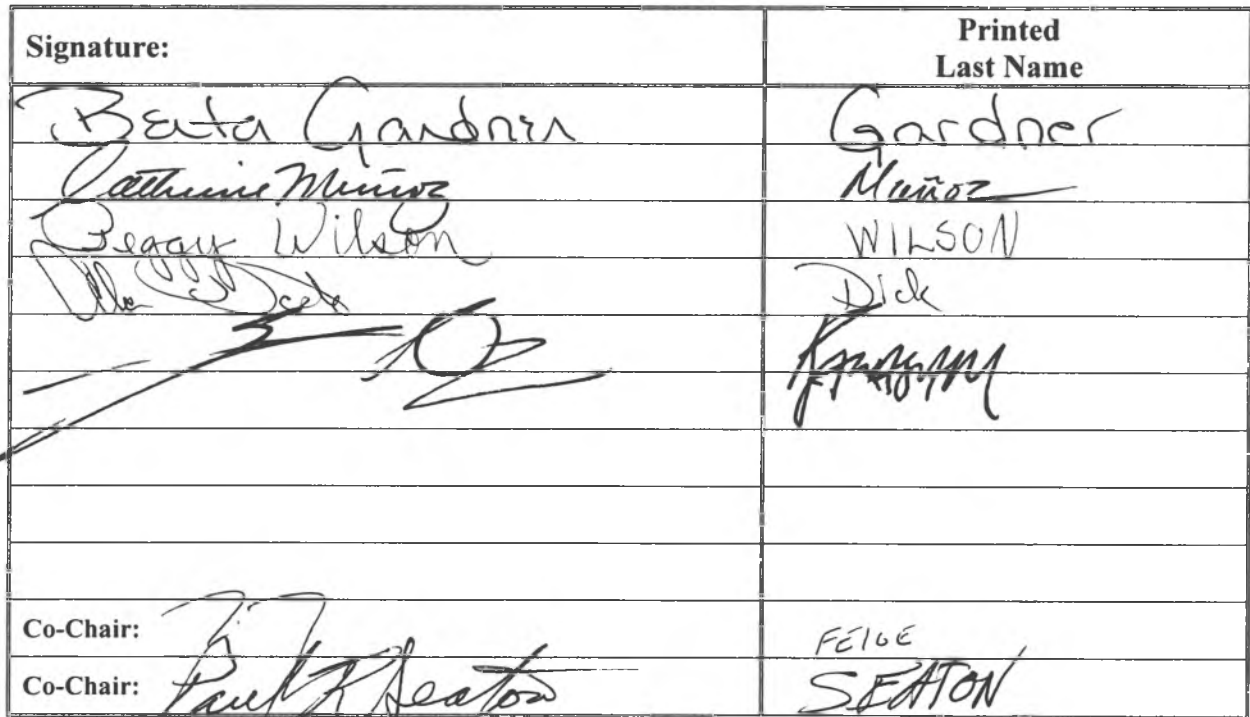 Signature: Printed Last Name
Berta Gardner Gardner
Catherine Muñoz Muñoz
Peggy Wilson WILSON
Dick
Co-Chair: FEIGE
Co-Chair: Paul K Seaton SEATON